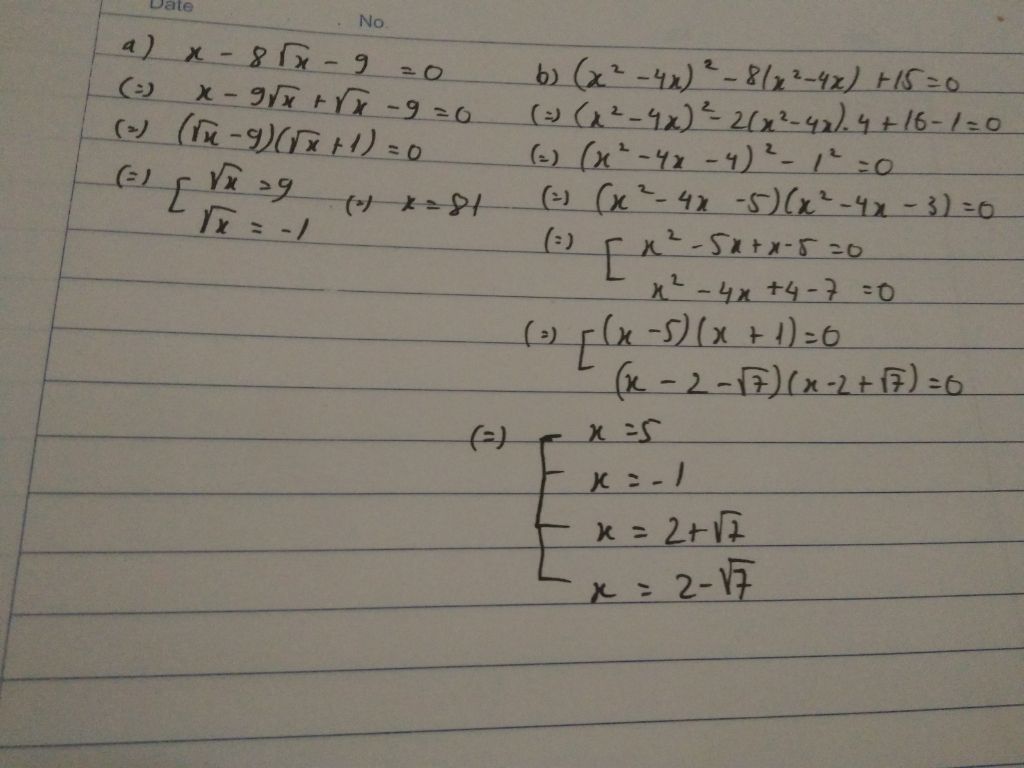 Date
No.
a) x - 8√x - 9 = 0
(=) x - 9√x + √x - 9 = 0
(=) (√x - 9)(√x + 1) = 0
(=) [ √x = 9
√x = -1
(=) x = 81
b) (x² - 4x)² - 8(x² - 4x) + 15 = 0
(=) (x² - 4x)² - 2(x² - 4x). 4 + 16 - 1 = 0
(=) (x² - 4x - 4)² - 1² = 0
(=) (x² - 4x - 5)(x² - 4x - 3) = 0
(=) [ x² - 5x + x - 5 = 0
x² - 4x + 4 - 7 = 0
(=) [ (x - 5)(x + 1) = 0
(x - 2 - √7)(x - 2 + √7) = 0
(=) [ x = 5
x = -1
x = 2 + √7
x = 2 - √7